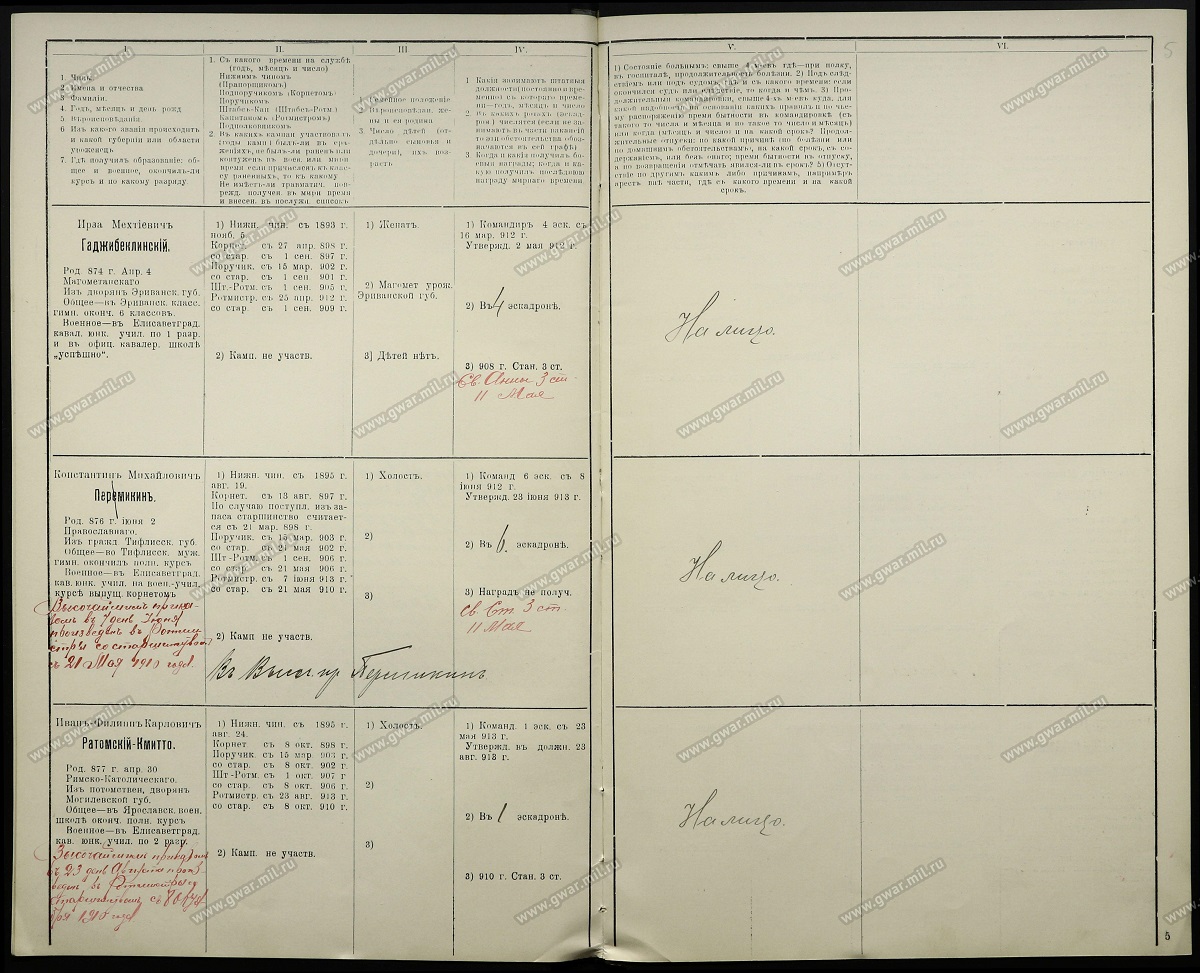 I.
II.
III.
IV.
V.
VI.
5
1. Чинъ.
2. Имена и отчества
3 Фамилія.
4. Годъ, мѣсяцъ и день рожд
5. Вѣроисповѣданіе
6 Изъ какого званія происходитъ
и какой губерніи или области
уроженецъ
7. Гдѣ получилъ образованіе: об-
щее и военное, окончилъ-ли
курсъ и по какому разряду.
1. Съ какого времени на службѣ
(годъ, мѣсяцъ и число)
Нижнимъ чиномъ
(Прапорщикомъ)
Подпоручикомъ (Корнетомъ)
Поручикомъ
Штабсъ-Кап (Штабсъ-Ротм.)
Капитаномъ (Ротмистромъ)
Подполковникомъ
2 Въ какихъ кампан участвовалъ
(годы камп) былъ-ли въ сра-
женіяхъ, не былъ-ли раненъ или
контуженъ въ воен. или мирн
время если причисленъ къ клас-
су раненыхъ, то къ какому
Не имѣетъ-ли травматич. пов-
режд. получен въ мирн время
и внесен. въ послужн. списокъ
1 Семейное положеніе
2 Вѣроисповѣдан. же-
ны и ея родина
3 Число дѣтей (от-
дѣльно сыновья и
дочери), ихъ воз-
растъ
1 Какія занимаютъ штатныя
должности (постоянной вре-
менно), съ котораго време-
ни—годъ, мѣсяцъ и число
2 Въ какихъ ротахъ (эскад-
рон) числятся (если не за-
нимаютъ въ части вакансій
то эти обстоятельства обоз-
начаются въ сей графѣ)
3 Когда и какія получилъ бо-
евыя награды; когда и ка-
кую получилъ послѣднюю
награду мирнаго времени.
1) Состояніе больнымъ: свыше 4 м-евъ гдѣ—при полку,
въ госпиталѣ, продолжительность болѣзни. 2) Подъ слѣд-
ствіемъ или подъ судомъ, гдѣ и съ какого времени; если
окончился судъ или слѣдствіе, то когда и чѣмъ. 3) Про-
должительныя командировки, свыше 4-хъ м-евъ куда, для
какой надобности, на основаніи какихъ правилъ и по чье-
му распоряженію время бытности въ командировкѣ (съ
такого то числа и мѣсяца и по такое то число и мѣсяцъ)
или когда (мѣсяцъ и число) и на какой срокъ? Продол-
жительные отпуски: по какой причинѣ (по болѣзни или
по домашнимъ обстоятельствамъ), на какой срокъ, съ со-
держаніемъ, или безъ онаго; время бытности въ отпуску,
а по возвращеніи отмѣчать явился-ли въ срокъ? 5) Отсут-
ствіе по другимъ какимъ либо причинамъ, напримѣръ
арестъ внѣ части, гдѣ съ какого времени и на какой
срокъ.
Ирза Мехтіевичъ
Гаджибеклинскій.
Род. 874 г. Апр. 4
Магометанскаго
Изъ дворянъ Эриванск. губ.
Общее—въ Эриванск. класс.
гимн. оконч. 6 классовъ.
Военное—въ Елисаветград.
кавал. юнк. учил. по 1 разр.
и въ офиц. кавалер. школѣ
„успѣшно“.
1) Нижн. чин. съ 1893 г.
нояб. 5.
Корнет. съ 27 апр. 898 г.
со стар. съ 1 сен. 897 г.
Поручик. съ 15 мар. 902 г.
со стар. съ 1 сен 901 г.
Шт.-Ротм. съ 1 сен. 905 г.
Ротмистр. съ 25 апр. 912 г.
со стар. съ 1 сен. 909 г.
2) Камп. не участв.
1) Женатъ.
2) Магомет урож.
Эриванской губ.
3] Дѣтей нѣтъ.
1) Командиръ 4 эск. съ
16 мар. 912 г.
Утвержд. 2 мая 912 г.
2) Въ 4 эскадронѣ.
3) 908 г. Стан. 3 ст.
Св. Анны 3 ст.
11 Мая
На лицо.
Константинъ Михайловичъ
Перемикинъ.
Род. 876 г. іюня 2
Православнаго.
Изъ гражд Тифлисск. губ.
Общее—во Тифлисск. муж.
гимн. окончилъ полн. курсъ
Военное—въ Елисаветград.
кав. юнк. учил. на воен.-учил.
курсѣ выпущ. корнетомъ
Высочайшимъ прика-
зомъ въ 7 день Іюня
произведенъ въ Ротми-
стры со старшинством
съ 21 Мая 1910 года.
1) Нижн. чин. съ 1895 г.
авг. 19.
Корнет. съ 13 авг. 897 г.
По случаю поступл. изъ за-
паса старшинство считает-
ся съ 21 мар. 898 г.
Поручик. съ 15 мар. 903 г.
со стар. съ 21 мая 902 г.
Шт-Ротм. съ 1 сен. 906 г.
со стар. съ 21 мая 906 г.
Ротмистр. съ 7 іюня 913 г.
со стар. съ 21 мая 910 г.
2) Камп не участв.
Въ Высоч. пр Перемикинъ
1) Холостъ.
2)
3)
1) Команд 6 эск. съ 8
іюня 912 г.
Утвержд. 23 іюня 913 г.
2) Въ 6. эскадронѣ.
3) Наградъ не получ.
Св. Ст 3 ст.
11 Мая
На лицо.
Иванъ-Филиппъ Карловичъ
Ратомскій-Кмитто.
Род. 877 г. апр. 30
Римско-Католическаго.
Изъ потомствен. дворянъ
Могилевской губ.
Общее—въ Ярославск. воен.
школѣ оконч. полн. курсъ
Военное—въ Елисаветград.
кав. юнк. учил. по 2 разр.
Высочайшимъ приказомъ
въ 23 день Августа произ-
веденъ въ Ротмистры со
старшинствомъ съ 8 Октя-
бря 1910 года.
1) Нижн. чин. съ 1895 г.
авг. 24.
Корнет съ 8 окт. 898 г.
Поручик. съ 15 мар. 903 г.
со стар. съ 8 окт. 902 г.
Шт-Ротм. съ 1 окт. 907 г
со стар. съ 8 окт. 906 г.
Ротмистр. съ 23 авг. 913 г.
со стар. съ 8 окт. 910 г.
2) Камп. не участв.
1) Холостъ.
2)
3)
1) Команд. 1 эск. съ 23
мая 913 г.
Утвержд. въ должн. 23
авг. 913 г.
2) Въ 1 эскадронѣ.
3) 910 г. Стан. 3 ст.
На лицо.
5
www.gwar.mil.ru